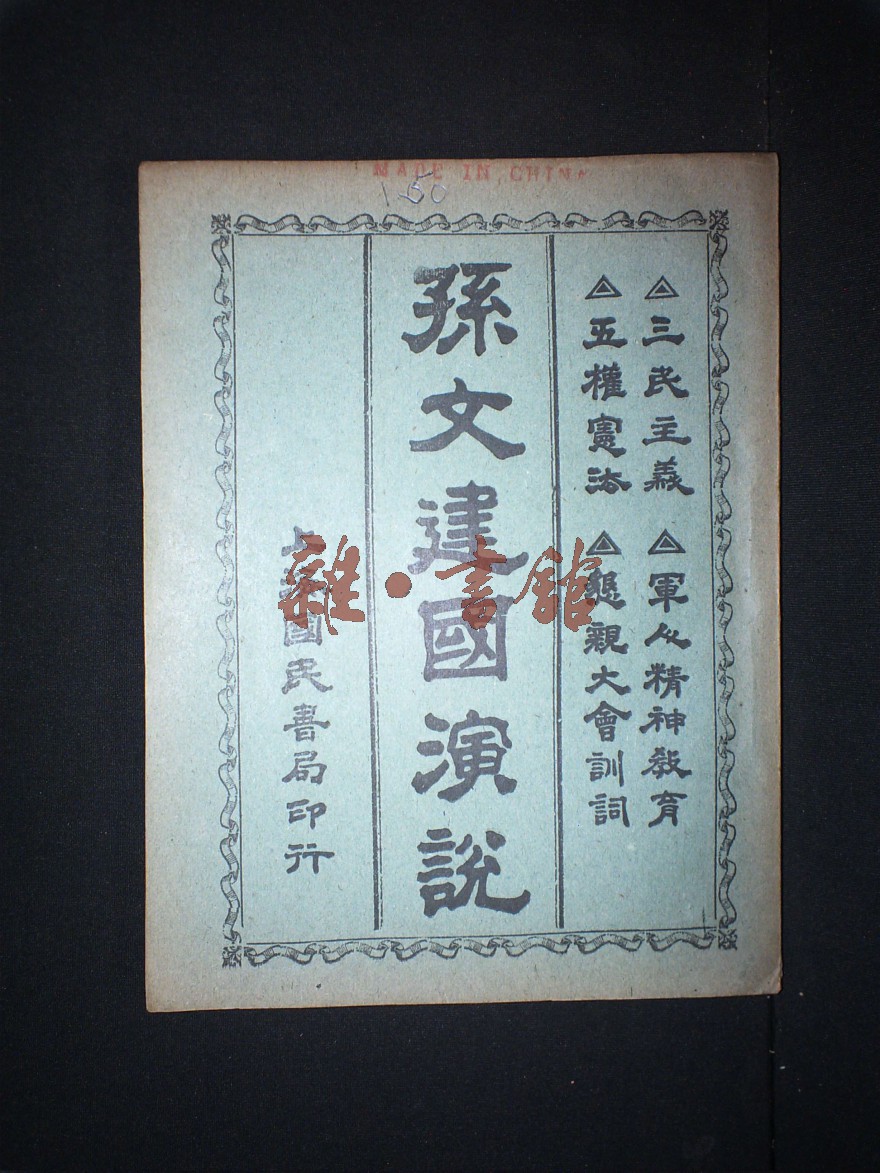 MADE IN CHINA
150
△三民主義 △軍人精神教育
△五權憲法 △懇親大會訓詞
孫文建國演說
上海國民書局印行
雜·書館